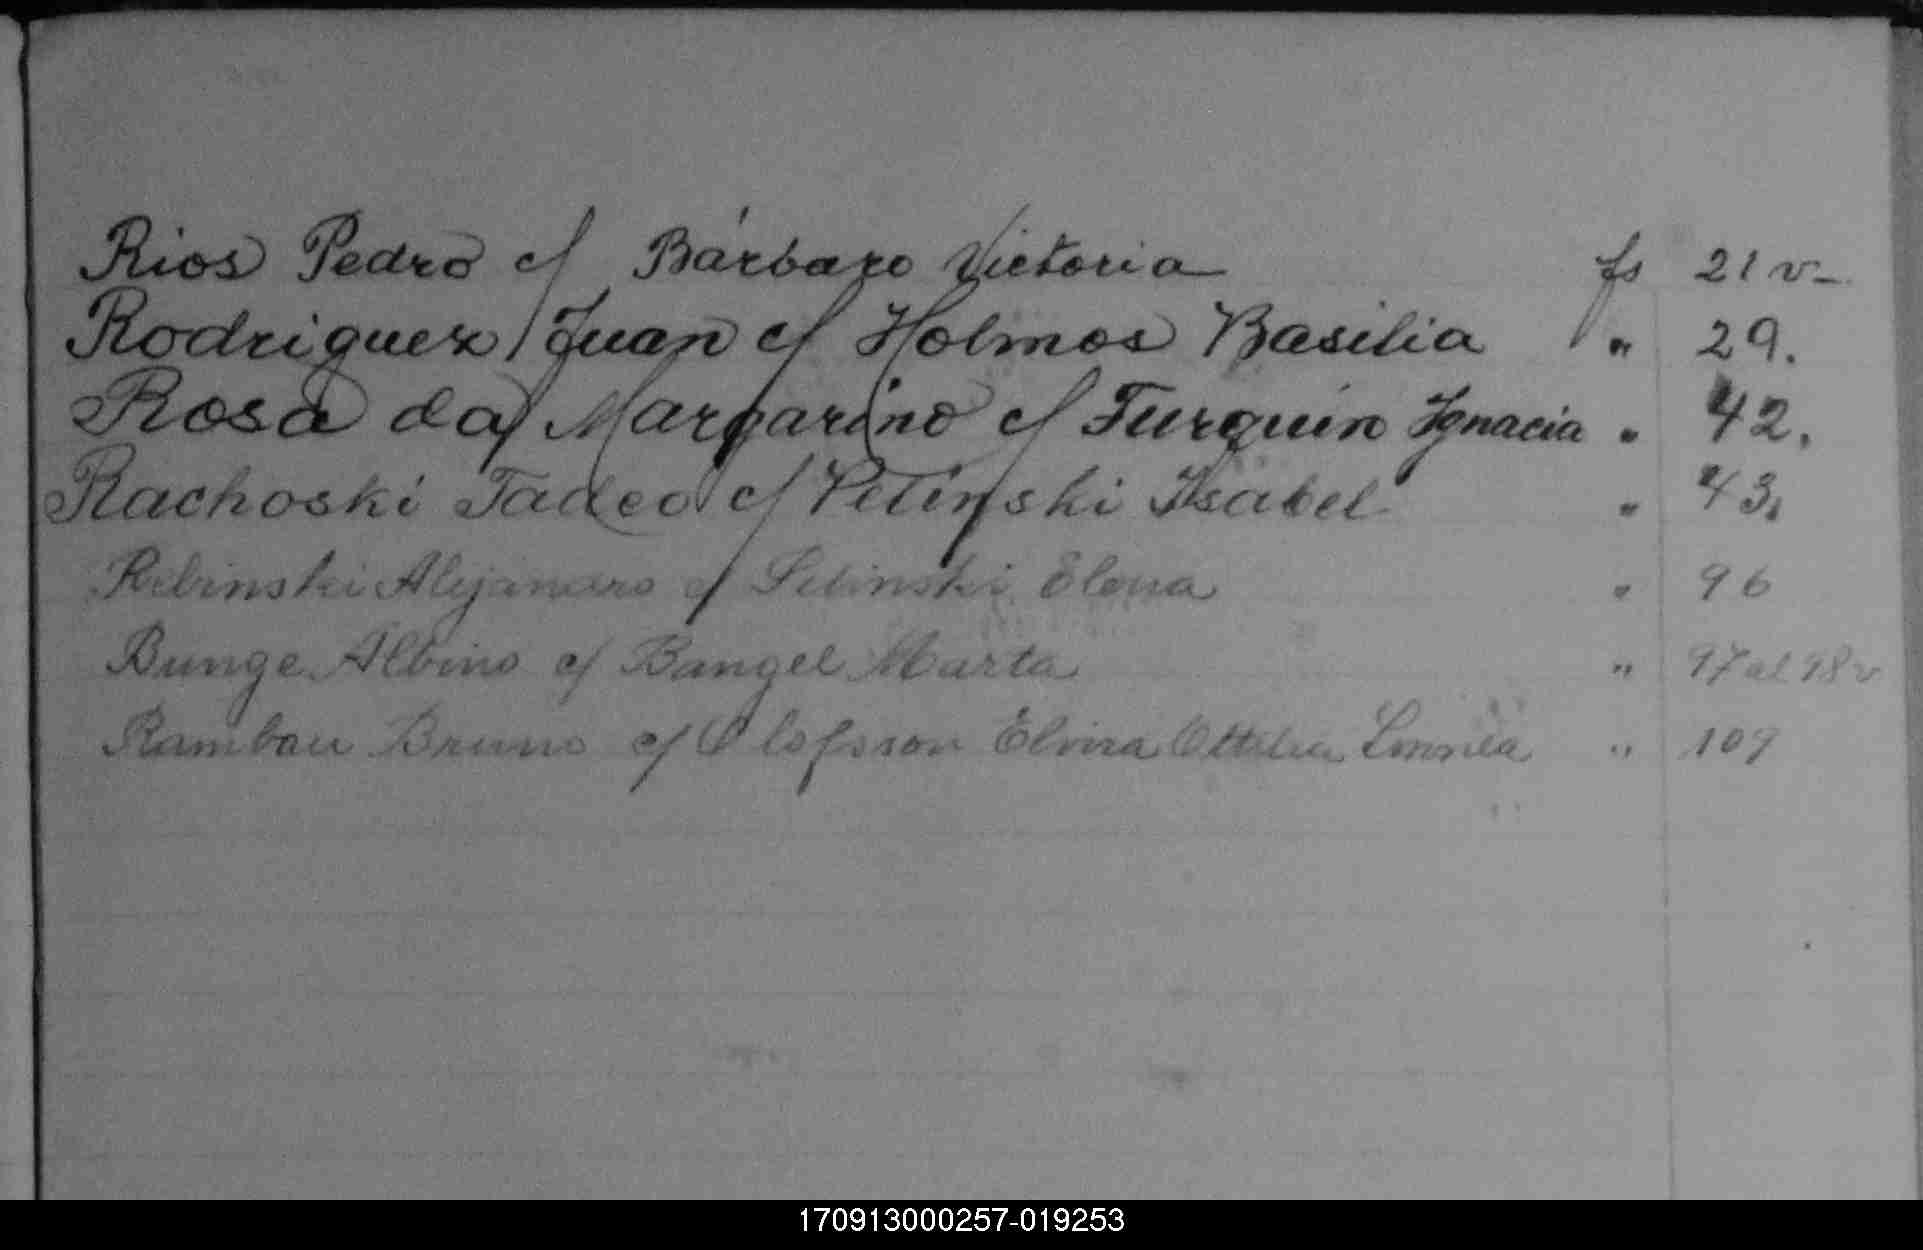 Rios Pedro c/ Bárbaro Victoria fs 21 v-
Rodriguez Juan c/ Holmos Basilia " 29.
Rosa da Margarino c/ Turquin Ignacia " 42.
Rachoski Tadeo c/ Petinski Isabel " 43.
Rebinski Alejandro c/ Elena " 96
Bunge Albino c/ Bangel Marta " 97 al 98 v
Rambau Bruno c/ Olofsson Elvira Ottilia Linnea " 109
170913000257-019253